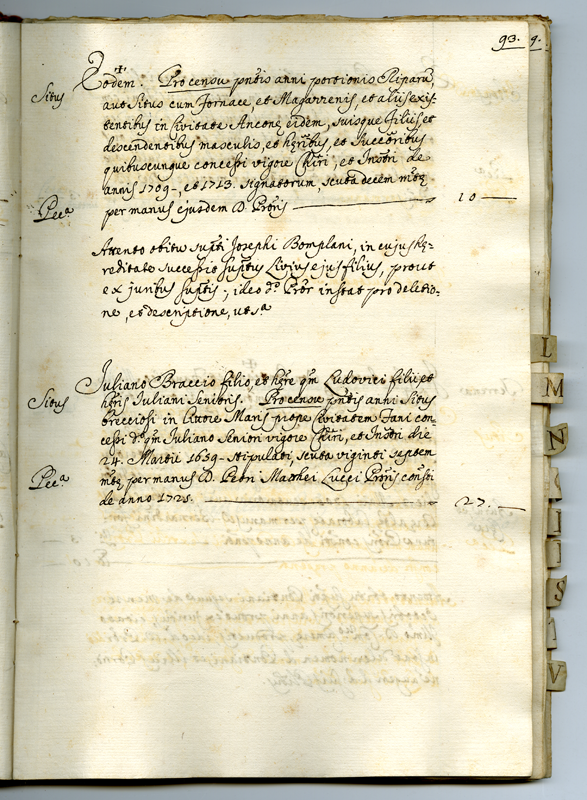 93. 9.
Eodem. Pro censu pntis anni portionis Riparu,
Situs
aut Situs cum fornace, et Magazzenis, et aliis exis-
tentibus in Civitate Anconę eidem, suisque filiis, et
descendentibus masculis, et hęribus, et succribus
quibuscunque concessi vigore Chiri, et Instri de
annis 1709-, et 1713. signatorum, scuta decem mtę
Peca
per manus ejusdem D. Pròris
10
Attento obitu supti Josephi Bomplani, in cujus hę-
reditate successit suptus Livius ejus filius, prout
ex juribus suptis, ideo ds Pròr instat pro deletio-
ne, et descriptione, ut sa
Juliano Braccio filio, et hęre qm Ludovici filii, et
Situs
hęris Juliani senioris. Pro censu pntis anni Situs
brecciosi in littore Maris prope Civitatem Fani con-
cessi do qm Juliano seniori vigore Chiri, et Instri die
24. Martii 1659- stipulati, scuta viginti septem
Peca
mtę per manus D. Petri Matthei Lucci Pròris constti
de anno 1725.
27.
L
M
N
S
V